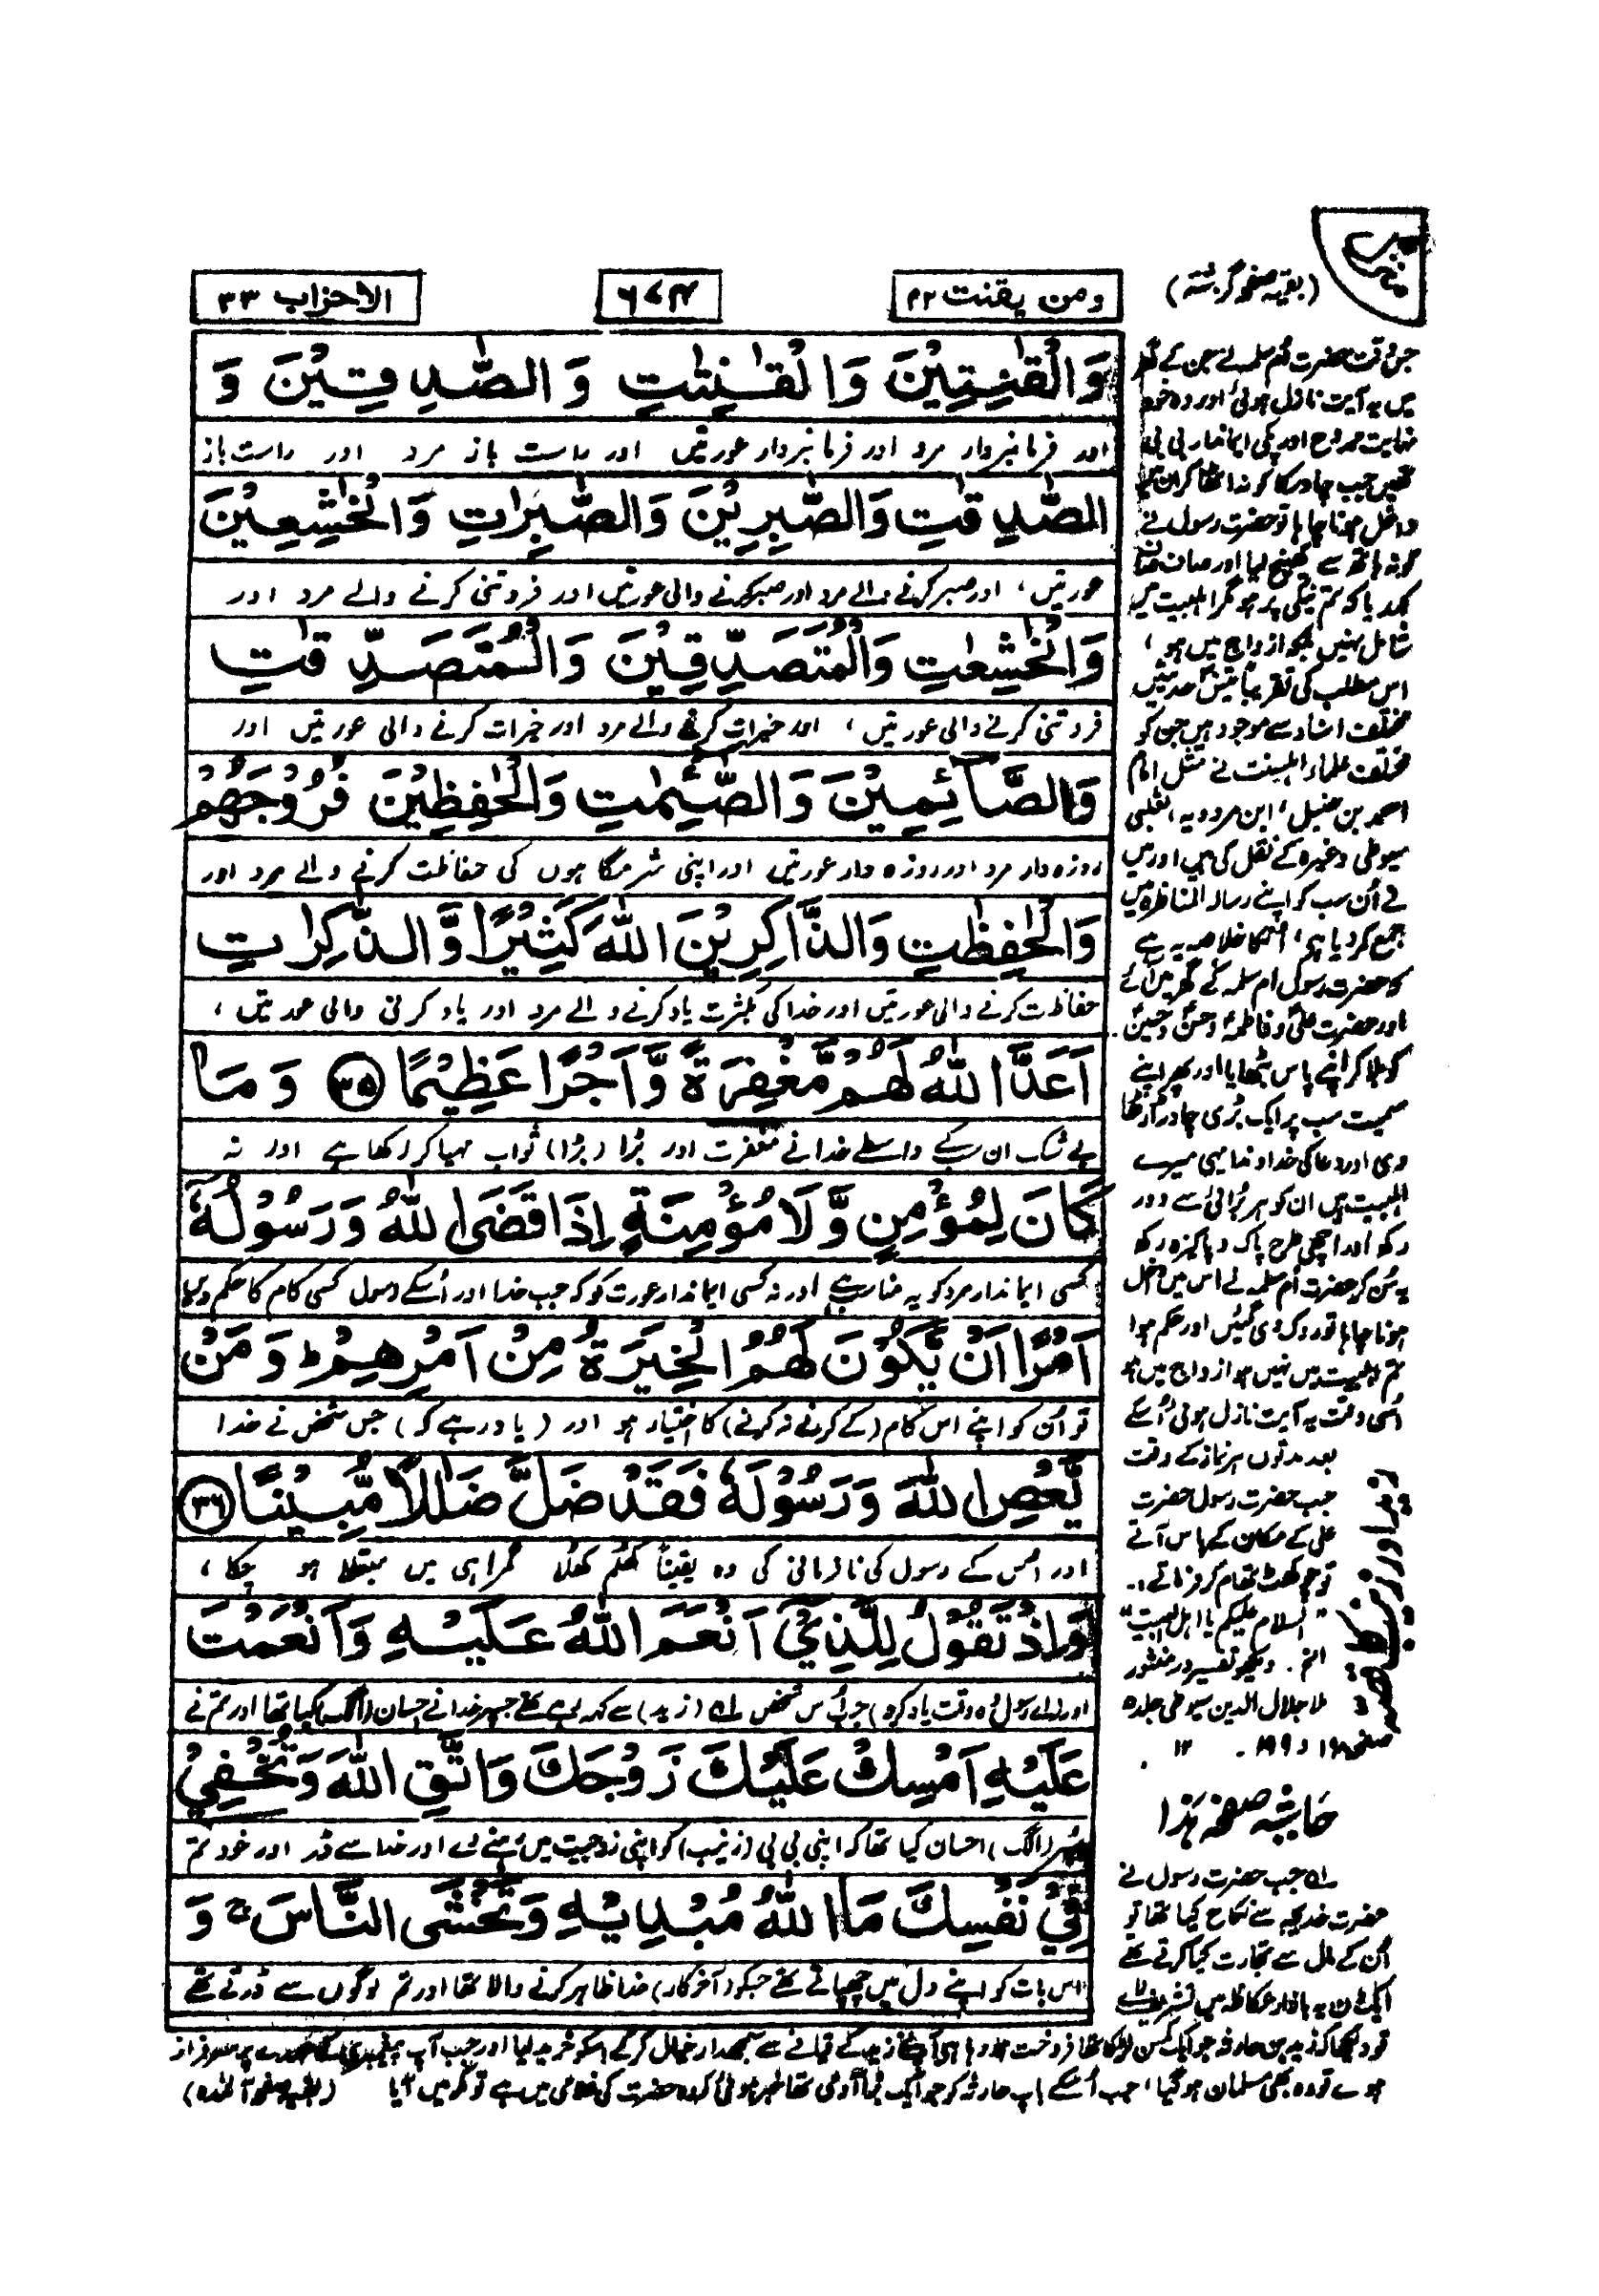 ومن یقنت ۲۲
۶۷۴
الاحزاب ۳۳
(بقیہ صفحہ گزشتہ)
وَالْقٰنِتِيْنَ وَالْقٰنِتٰتِ وَالصّٰدِقِيْنَ وَ
اور فرمانبردار مرد اور فرمانبردار عورتیں اور راست باز مرد اور راست باز
الصّٰدِقٰتِ وَالصّٰبِرِيْنَ وَالصّٰبِرٰتِ وَالْخٰشِعِيْنَ
عورتیں، اور صبر کرنے والے مرد اور صبر کرنے والی عورتیں اور فروتنی کرنے والے مرد اور
وَالْخٰشِعٰتِ وَالْمُتَصَدِّقِيْنَ وَالْمُتَصَدِّقٰتِ
فروتنی کرنے والی عورتیں، اور خیرات کرنے والے مرد اور خیرات کرنے والی عورتیں اور
وَالصَّآئِمِيْنَ وَالصّٰٓئِمٰتِ وَالْحٰفِظِيْنَ فُرُوْجَهُمْ
روزہ دار مرد اور روزہ دار عورتیں اور اپنی شرمگاہوں کی حفاظت کرنے والے مرد اور
وَالْحٰفِظٰتِ وَالذَّاكِرِيْنَ اللّٰهَ كَثِيْرًا وَّالذّٰكِرٰتِ
حفاظت کرنے والی عورتیں اور خدا کی بکثرت یاد کرنے والے مرد اور یاد کرنی والی عورتیں،
اَعَدَّ اللّٰهُ لَهُمْ مَّغْفِرَةً وَّاَجْرًا عَظِيْمًا ۳۵ وَمَا
بے شک ان کے واسطے خدا نے مغفرت اور بڑا (بڑا) ثواب مہیا کر رکھا ہے اور نہ
كَانَ لِمُؤْمِنٍ وَّلَا مُؤْمِنَةٍ اِذَا قَضَى اللّٰهُ وَرَسُوْلُهٗٓ
کسی ایماندار مرد کو یہ مناسب ہے اور نہ کسی ایماندار عورت کو کہ جب خدا اور اُسکے رسول کسی کام کا حکم دیں
اَمْرًا اَنْ يَّكُوْنَ لَهُمُ الْخِيَرَةُ مِنْ اَمْرِهِمْ ط وَمَنْ
تو اُن کو اپنے اس کام (کے کرنے نہ کرنے) کا اختیار ہو اور (یاد رہے کہ) جس شخص نے خدا
يَّعْصِ اللّٰهَ وَرَسُوْلَهٗ فَقَدْ ضَلَّ ضَلٰلًا مُّبِيْنًا ۳۶
اور اُس کے رسول کی نافرمانی کی وہ یقیناً کھلم کھلا گمراہی میں مبتلا ہو چکا،
وَاِذْ تَقُوْلُ لِلَّذِيْٓ اَنْعَمَ اللّٰهُ عَلَيْهِ وَاَنْعَمْتَ
اور (اے رسول وہ وقت یاد کرو) جب اُس شخص (زید) سے کہہ رہے تھے جسپر خدا نے احسان (الگ) کیا تھا اور تم نے
عَلَيْهِ اَمْسِكْ عَلَيْكَ زَوْجَكَ وَاتَّقِ اللّٰهَ وَتُخْفِيْ
(الگ) احسان کیا تھا کہ اپنی بی بی (زینب) کو اپنی زوجیت میں رہنے دے اور خدا سے ڈر اور خود تم
فِيْ نَفْسِكَ مَا اللّٰهُ مُبْدِيْهِ وَتَخْشَى النَّاسَ ج وَ
اس بات کو اپنے دل میں چھپاتے تھے جسکو (آخر کار) خدا ظاہر کرنے والا تھا اور تم لوگوں سے ڈرتے تھے
جس وقت حضرت ام سلمہ نے جن کے گھر
میں یہ آیت نازل ہوئی اور وہ خود
نہایت ممدوح اور پکی ایماندار بی بی
تھیں جب چادر کا کونہ اٹھا کر ان میں
داخل ہونا چاہا تو حضرت رسول نے
کونہ ہاتھ سے کھینچ لیا اور صاف صاف
کہدیا کہ تم نیکی پر ہو مگر اہلبیت میں
شامل نہیں بلکہ ازواج میں ہو،
اس مطلب کی تقریباً تیس حدیثیں
مختلف اسناد سے موجود ہیں جن کو
مختلف علماء اہلسنت نے مثل امام
احمد بن حنبل، ابن مردویہ، ثعلبی
سیوطی وغیرہ کے نقل کی ہیں اور میں
نے اُن سب کو اپنے رسالہ المناظرہ میں
جمع کر دیا ہے، اسکا خلاصہ یہ ہے
کہ حضرت رسول ام سلمہ کے گھر میں آئے
اور حضرت علی و فاطمہ و حسن و حسین
کو بلا کر اپنے پاس بٹھایا اور پھر اپنے
سمیت سب پر ایک بڑی چادر اُڑھا
دی اور دعا کی خداوندا یہی میرے
اہلبیت ہیں ان کو ہر برائی سے دور
رکھ اور اچھی طرح پاک و پاکیزہ رکھ
یہ سن کر حضرت ام سلمہ نے اس میں داخل
ہونا چاہا تو روک دی گئیں اور حکم ہوا
تم اہلبیت میں نہیں ہو ازواج میں ہو
اُسی وقت یہ آیت نازل ہوئی اُسکے
بعد مدتوں ہر نماز کے وقت
جب حضرت رسول حضرت
علی کے مکان کے پاس آتے
تو چوکھٹ تھام کر فرماتے۔
"السلام علیکم یا اہل البیت"
الخ۔ دیکھو تفسیر در منثور
ملا جلال الدین سیوطی جلد ۵
صفحہ ۱۹۸ و ۱۹۹۔ ۱۲
حاشیہ صفحہ ہٰذا
جب حضرت رسول نے
حضرت خدیجہ سے نکاح کیا تھا تو
اُن کے مال سے تجارت کیا کرتے تھے
ایک دن یہ بازار عکاظ میں تشریف لے
تو دیکھا کہ زید بن حارثہ جو ایک کمسن لڑکا تھا فروخت ہو رہا ہے آپ نے زید کے قیافے سے سمجھدار خیال کر کے اسکو خرید لیا اور جب آپ پیغمبری کے عہدے پر سرفراز
ہوے تو وہ بھی مسلمان ہو گیا، جب اُسکے باپ حارثہ کو جو ایک بڑا آدمی تھا خبر ہوئی کہ وہ حضرت کی غلامی میں ہے تو مکہ میں آیا (بقیہ صفحہ آئندہ)